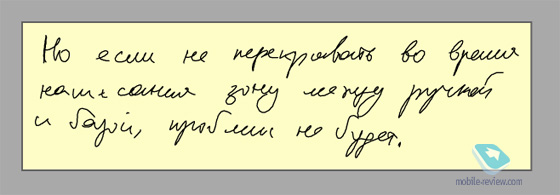 Но если не перекрывать во время
написания зону между ручкой
и базой, проблем не будет.
mobile-review.com